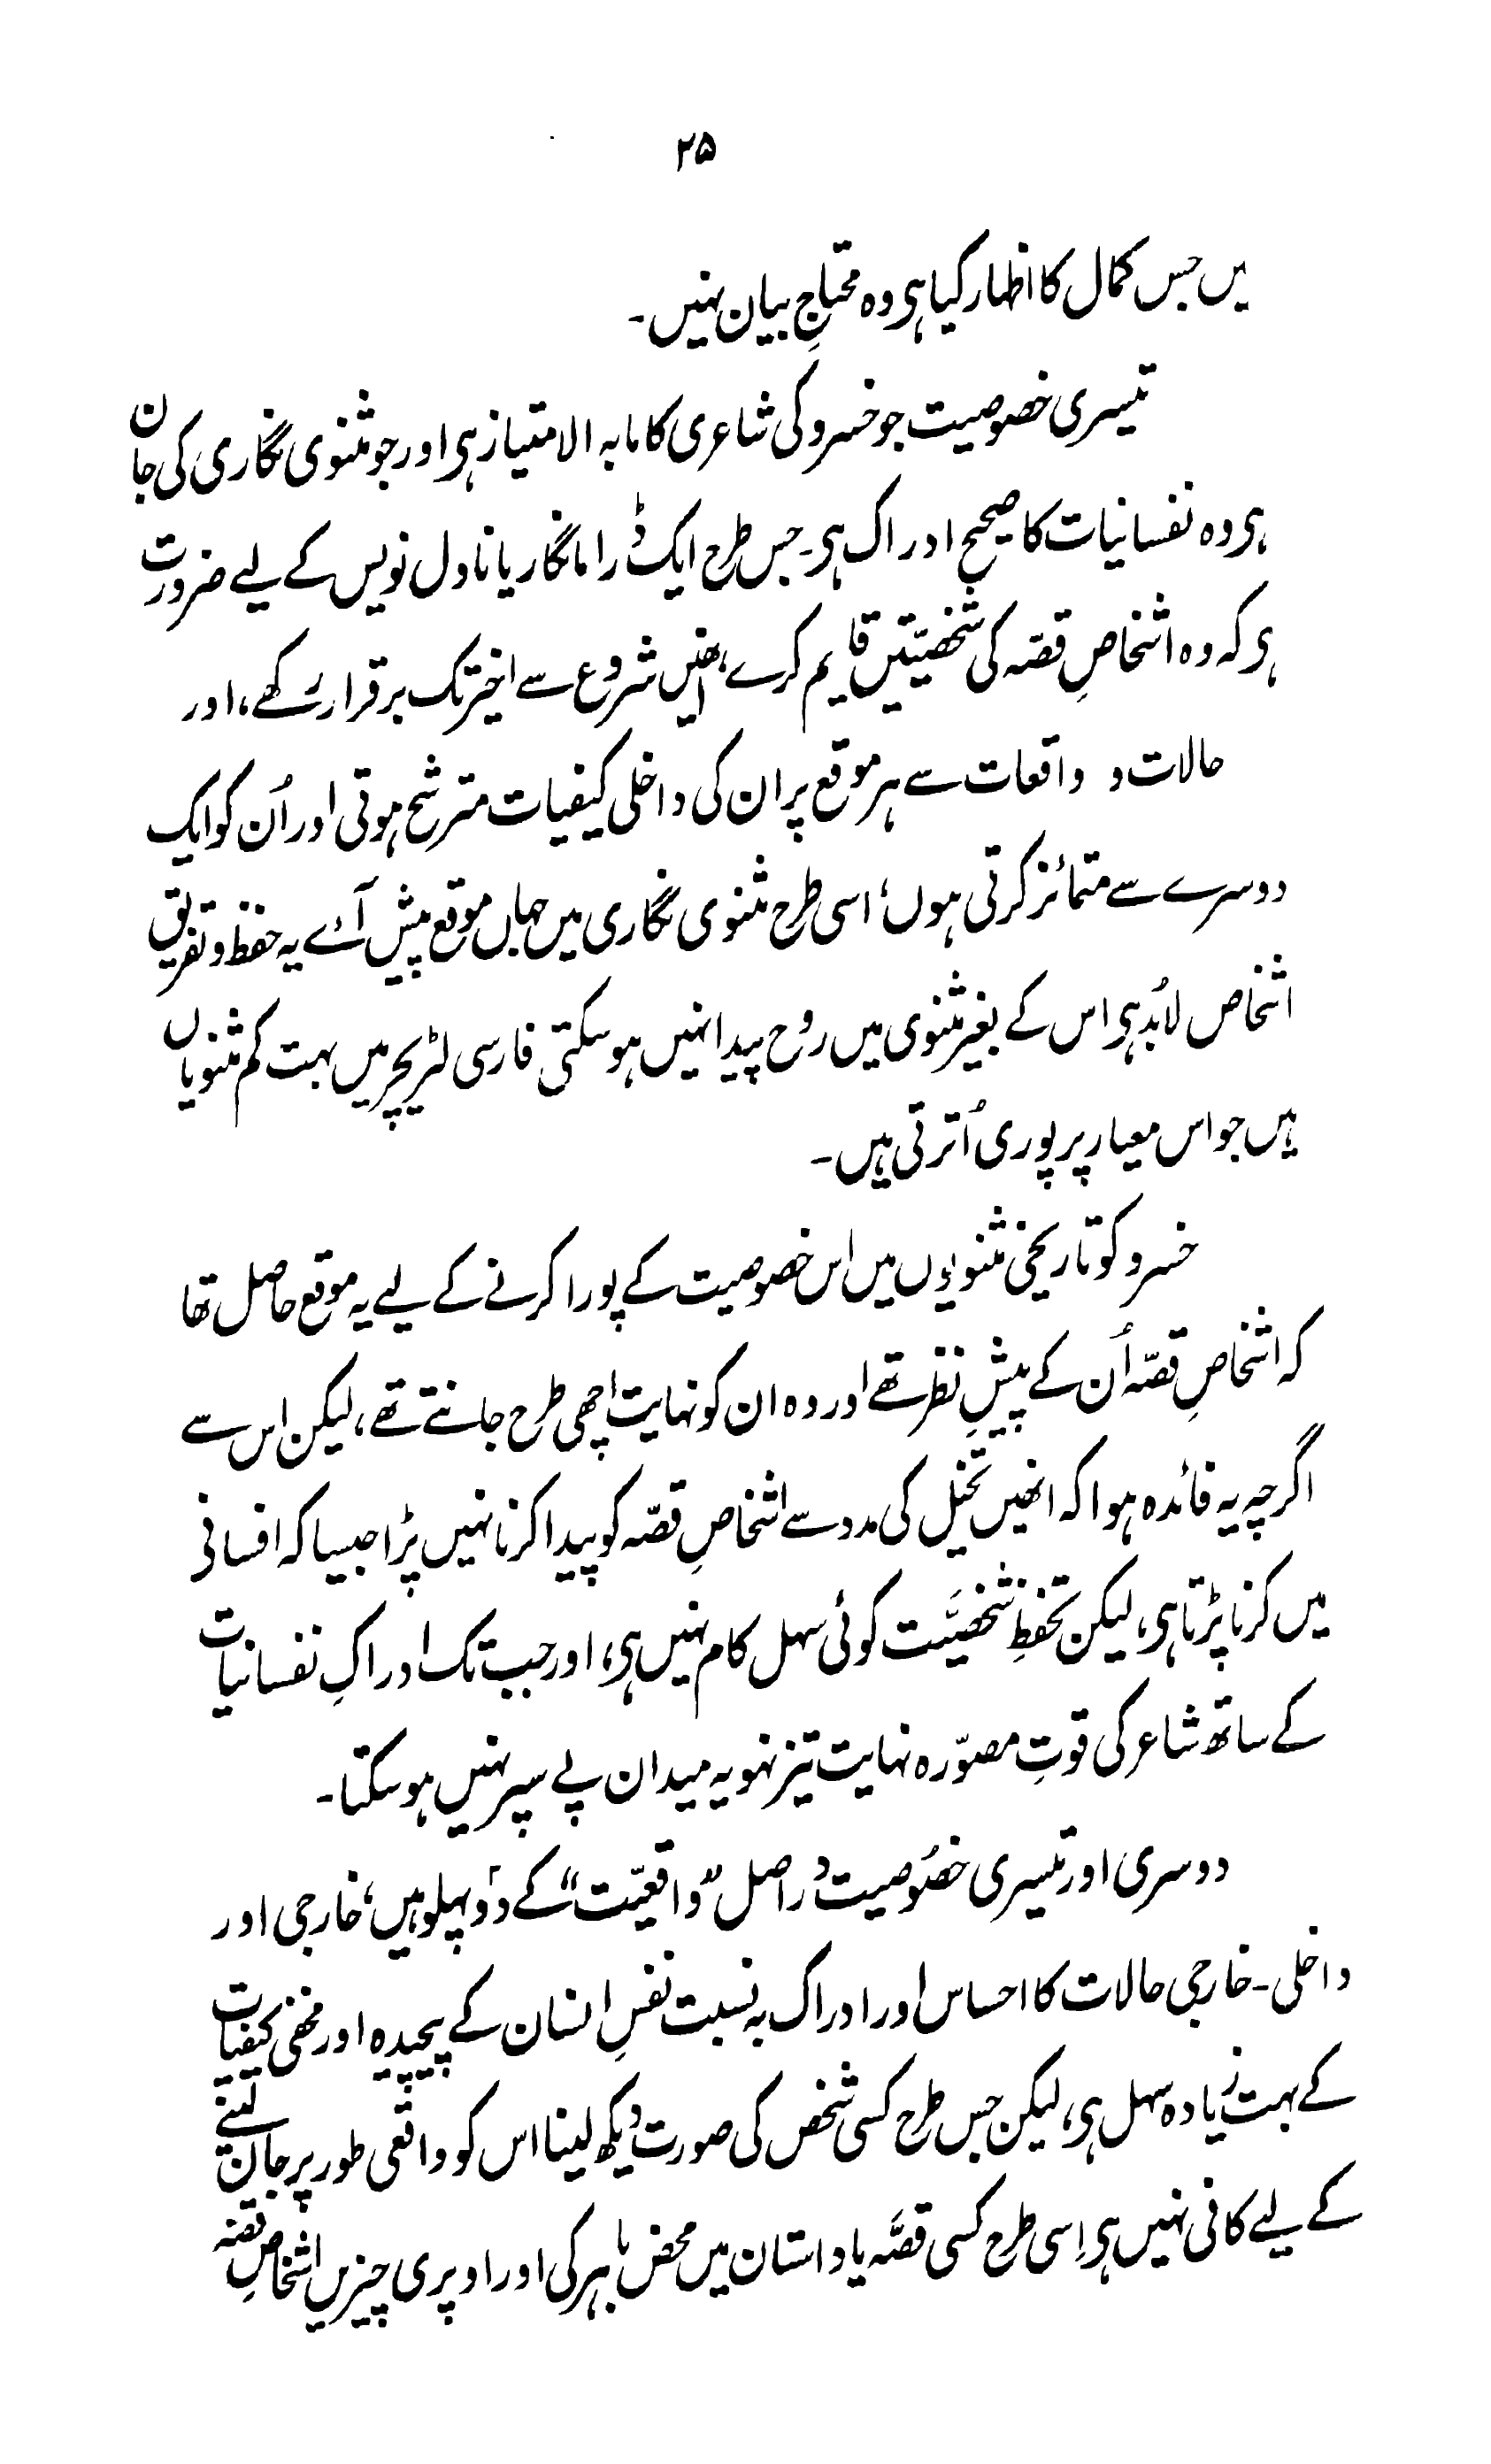 ۲۵
میں جس کمال کا اظہار کیا ہی وہ محتاجِ بیان نہیں۔
تیسری خصوصیت جو خسرو کی شاعری کا مابہ الامتیاز ہی اور جو مثنوی نگاری کی جان
ہی وہ نفسانیات کا صحیح ادراک ہی۔ جس طرح ایک ڈراما نگار یا ناول نویس کے لیے ضرورت
ہی کہ وہ اشخاصِ قصّہ کی شخصیّتیں قایم کرے، انھیں شروع سے اخیر تک برقرار رکھے، اور
حالات و واقعات سے ہر موقع پر ان کی داخلی کیفیات مترشح ہوتی اور اُن کو ایک
دوسرے سے متمائز کرتی ہوں، اسی طرح مثنوی نگاری میں جہاں موقع پیش آئے یہ حفظ و تفریق
اشخاص لابُد ہی اس کے بغیر مثنوی میں روح پیدا نہیں ہو سکتی فارسی لٹریچر میں بہت کم مثنویاں
ہیں جو اس معیار پر پوری اُترتی ہیں۔
خسرو کو تاریخی مثنویوں میں اس خصوصیت کے پورا کرنے کے لیے یہ موقع حاصل تھا
کہ اشخاصِ قصّہ اُن کے پیشِ نظر تھے اور وہ ان کو نہایت اچھی طرح جانتے تھے، لیکن اس سے
اگرچہ یہ فائدہ ہوا کہ انھیں تخیّل کی مدد سے اشخاصِ قصّہ کو پیدا کرنا نہیں پڑا جیسا کہ افسانی
میں کرنا پڑتا ہی، لیکن تحفظِ شخصیَّت کوئی سہل کام نہیں ہی، اور جب تک ادراکِ نفسانیات
کے ساتھ شاعر کی قوتِ مصوّرہ نہایت تیز نہو یہ میدان پے سپر نہیں ہو سکتا۔
دوسری اور تیسری خصُوصیت دراصل ”واقعیّت“ کے دو پہلو ہیں، خارجی اور
داخلی۔ خارجی حالات کا احساس اور ادراک بہ نسبت نفسِ انسان کے پیچیدہ اور مخفی کیفیات
کے بہت زیادہ سہل ہی، لیکن جس طرح کسی شخص کی صورت دیکھ لینا اس کو واقعی طور پر جان لینے
کے لیے کافی نہیں ہی اِسی طرح کسی قصَّہ یا داستان میں محض باہر کی اور اوپری چیزیں اشخاصِ قصّہ